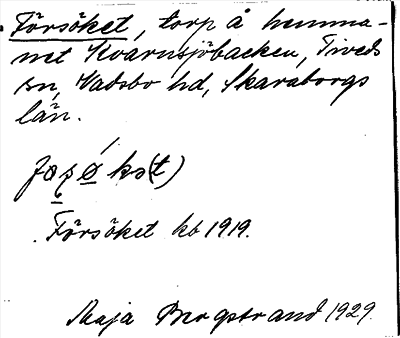 Försöket, torp å hemma-
net Kvarnsjöbacken, Tiveds
sn, Vadsbo hd, Skaraborgs
län.
Försöket kb 1919.
Maja Bergstrand 1929.